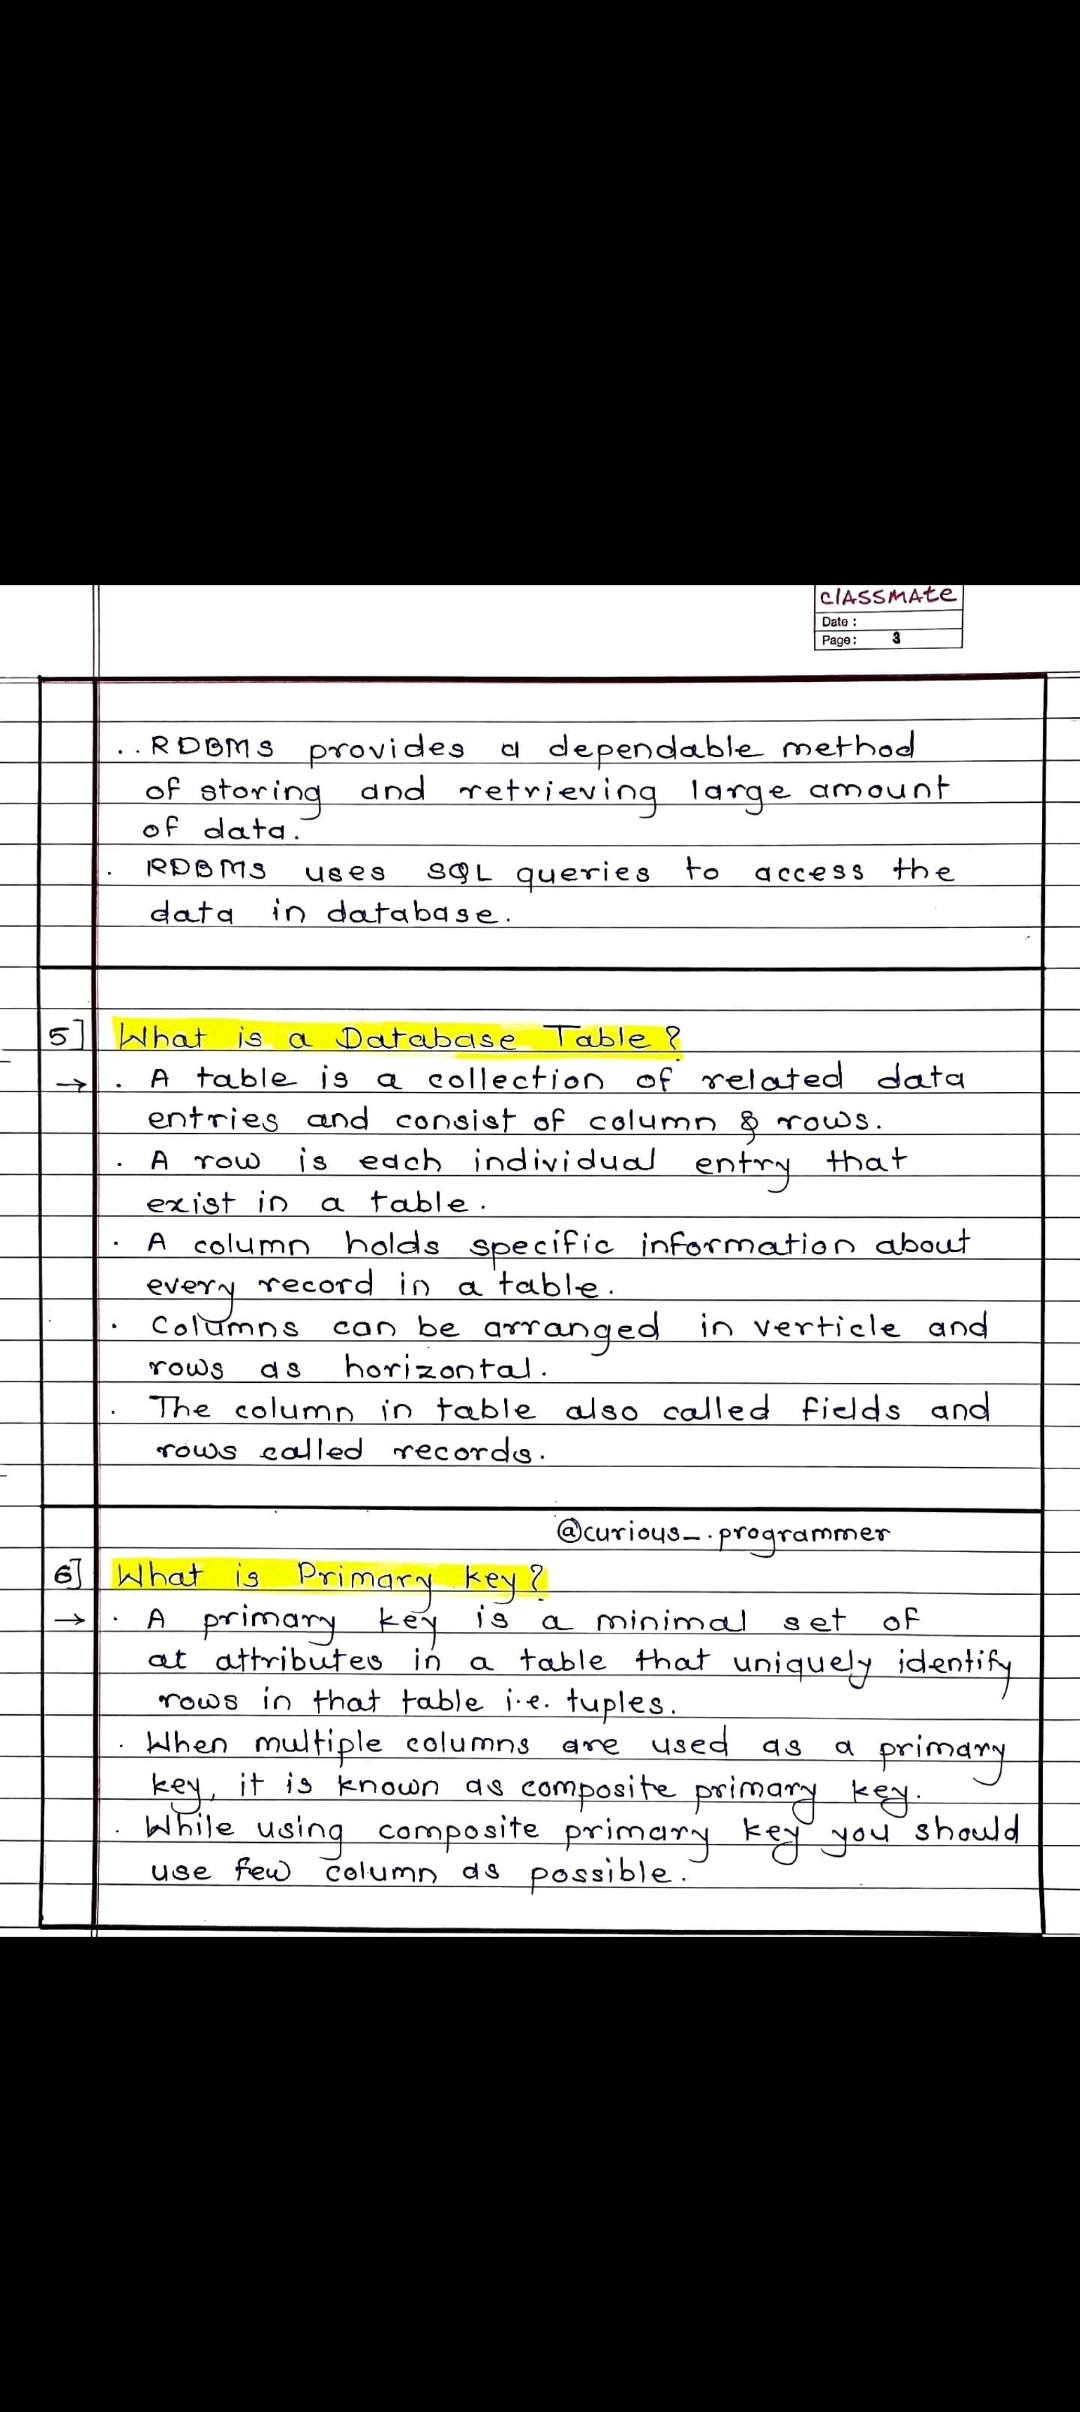 classmate
Date :
Page: 3
.. RDBMS provides a dependable method
of storing and retrieving large amount
of data.
. RDBMS uses SQL queries to access the
data in database.
5] What is a Database Table?
→ . A table is a collection of related data
entries and consist of column & rows.
. A row is each individual entry that
exist in a table.
. A column holds specific information about
every record in a table.
. Columns can be arranged in verticle and
rows as horizontal.
. The column in table also called fields and
rows called records.
@curious_.programmer
6] What is Primary key?
→ . A primary key is a minimal set of
at attributes in a table that uniquely identify
rows in that table i.e. tuples.
. When multiple columns are used as a primary
key, it is known as composite primary key.
. While using composite primary key you should
use few column as possible.